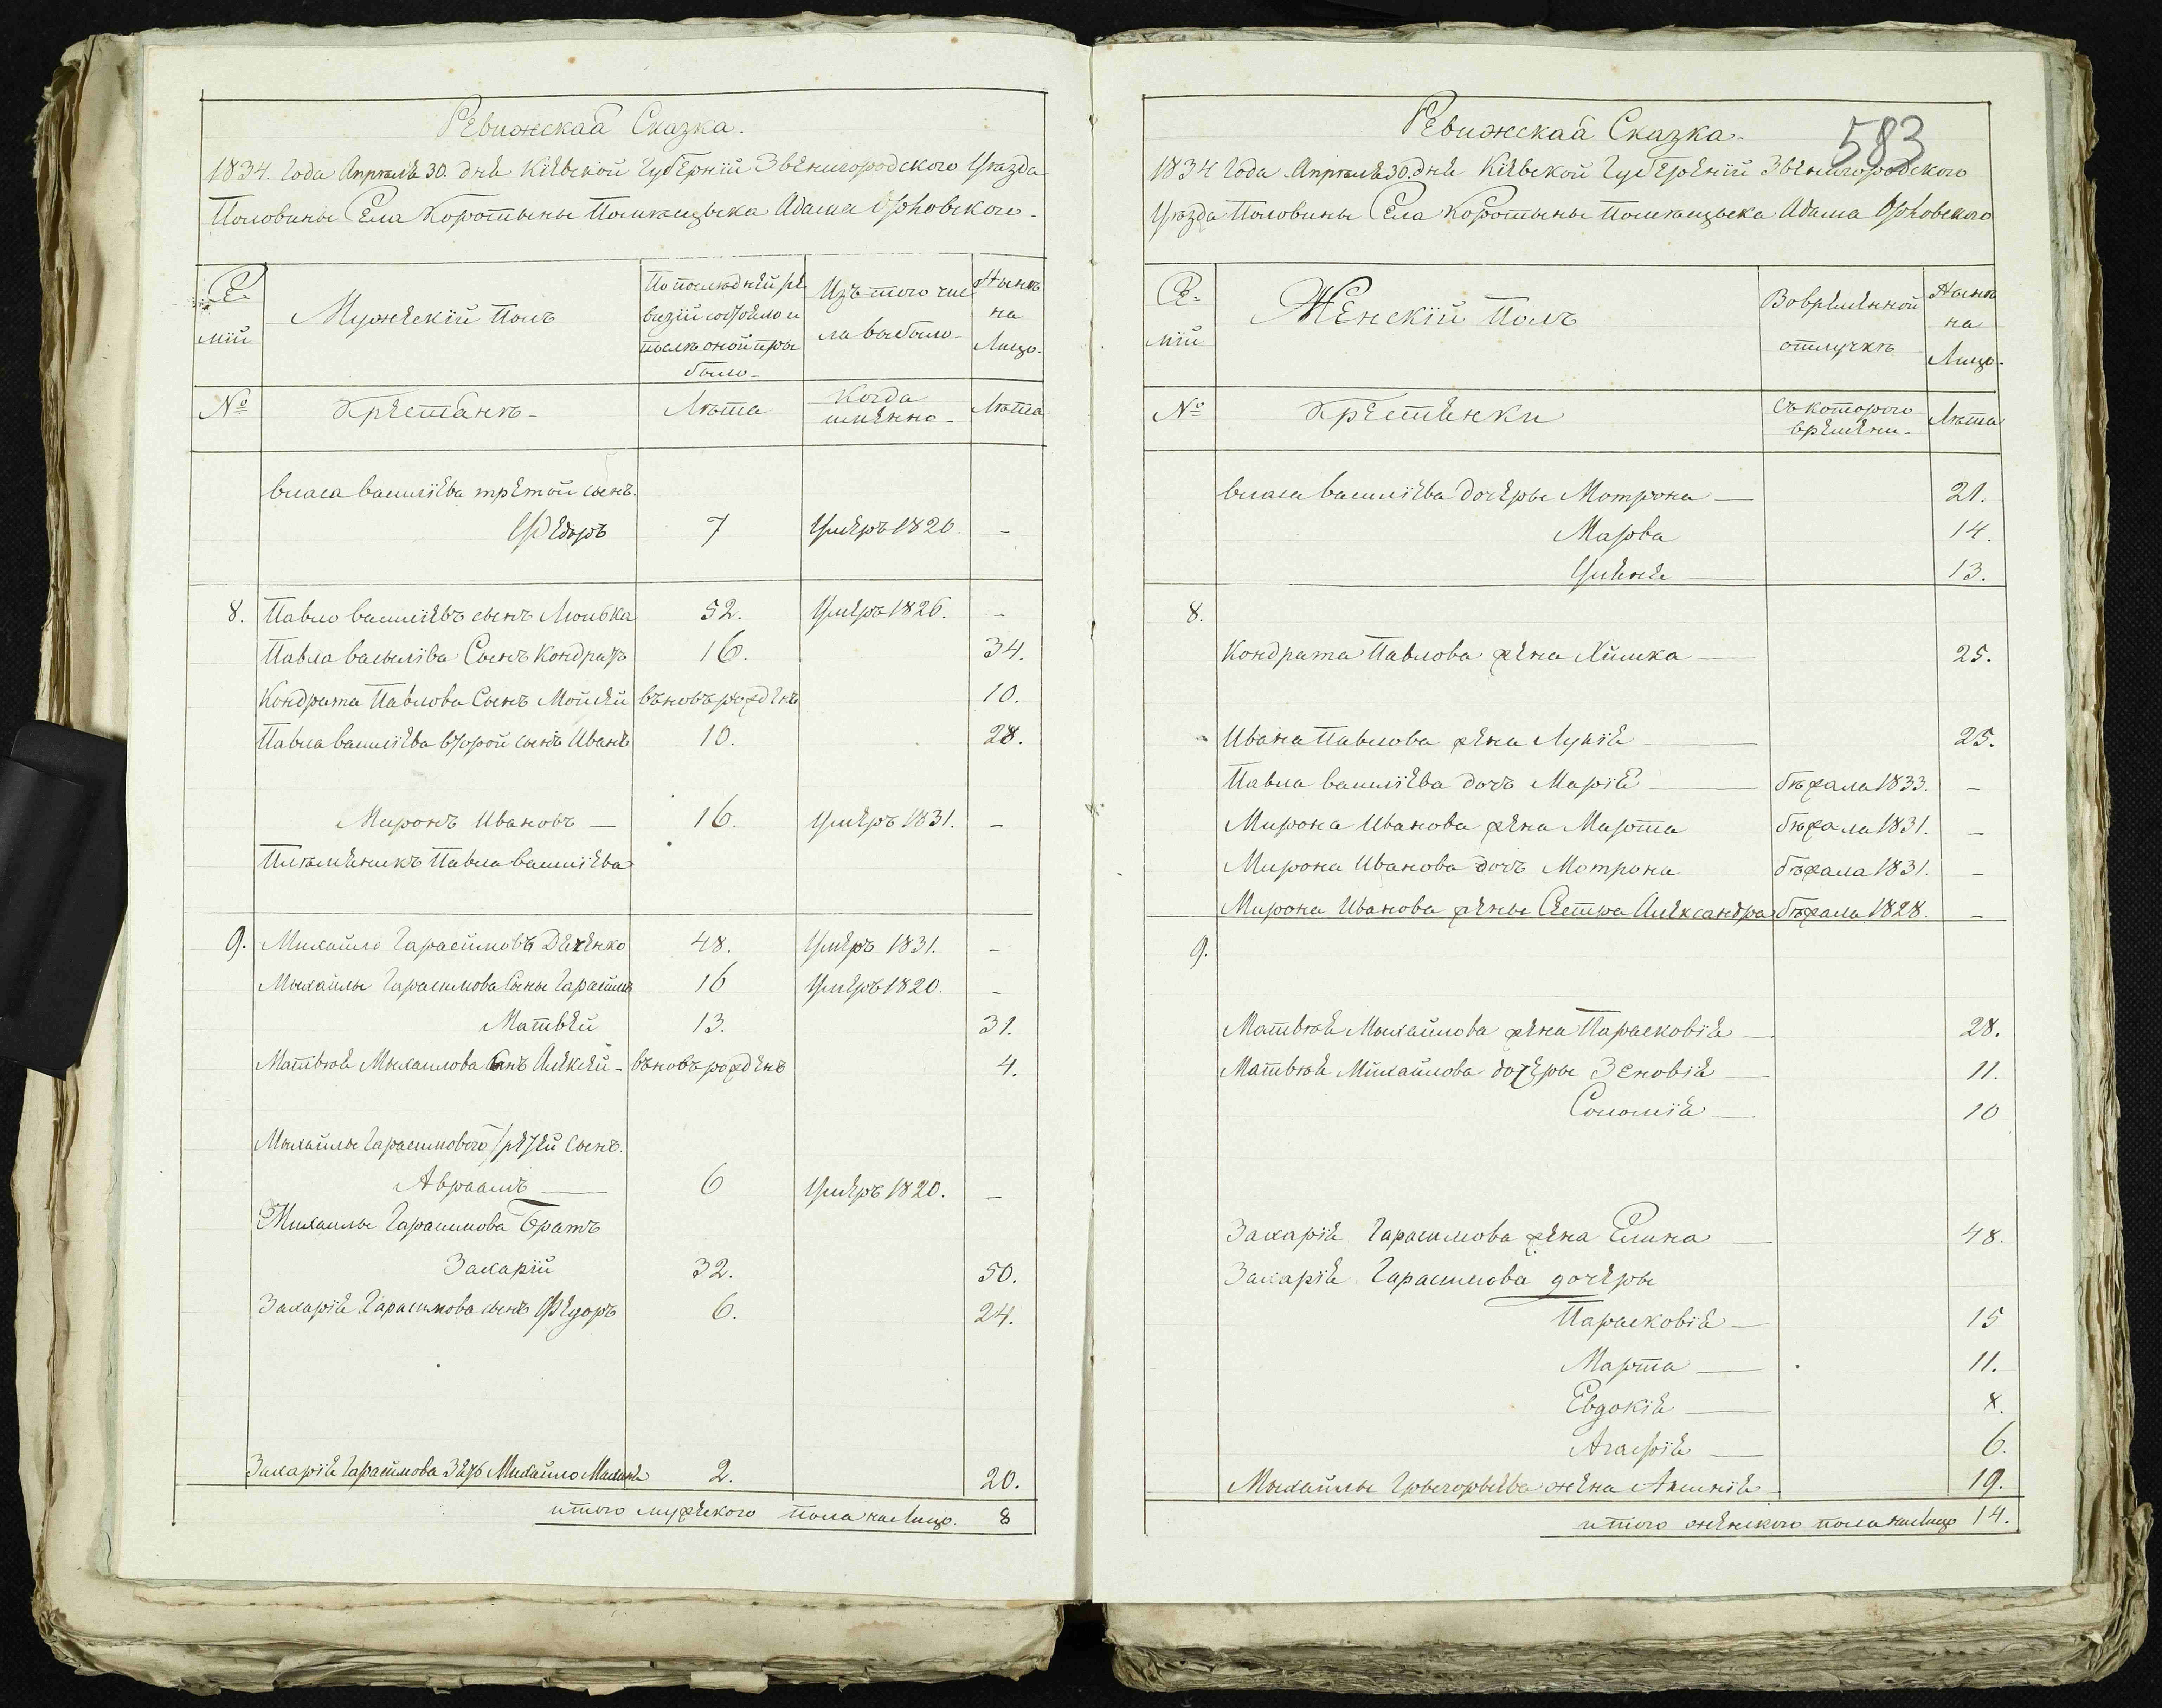 Ревижская Сказка.
1834. года Апреля 30. дня Кіевской Губерніи Звенигородского Уезда
Половины Села Коротыны Помещыка Адама
Се-
міи
Мужеский Полъ
По последней ре
визіи состояло и
после оной при
было-
Изъ того чис
ла выбыло-
Ныне
на
Лицо-
№
Крестяне-
Лета
Когда
именно-
Лета
власа василіева третой сынъ.
Федоръ 7 Умеръ 1820. -
8. Павло василіевъ сынъ Люлька 52. Умеръ 1826. -
Павла васыліва Сынъ Кондратъ 16. 34.
Кондрата Павлова Сынъ Мойсей въновь рожденъ 10.
Павла василіева второй сынъ Иванъ 10. 28.
Миронъ Ивановъ — 16. Умеръ 1831. -
Племеникъ Павла василіева
9. Михайло Гарасимовъ 48. Умеръ 1831. -
Мыхайлы Гарасимова Сыны Гарасимъ 16 Умеръ 1820. -
Матвей 13. 31.
Матвея Мыхаилова Сынъ Алексей - въновь рожденъ 4.
Мыхайлы Гарасимового третей сынъ.
Авраамъ — 6 Умеръ 1820. -
Михаилы Гарасимова Братъ
Захарій 32. 50.
Захарія Гарасимова сынъ Федоръ 6. 24.
Захарія Гарасимова Зять Михайло 2. 20.
итого мужеского пола налицо. 8
583
Ревижская Сказка.
1834 года Апреля 30. дня Кіевской Губерніи Звенигородского
Уезда Половины Села Коротыны Помещыка Адама
Се-
міи
Женскій Полъ
Вовременной
отлучке
Ныне
на
Лицо-
№
Крестянки
съ которого
времени-
Лета
власа василіева дочеры Мотрона — 21.
Марва 14.
Уляня — 13.
8.
Кондрата Павлова жена Химка — 25.
Ивана Павлова жена Лукія — 25.
Павла василіева дочь Марія — бежала 1833. -
Мирона Иванова жена Марта бежала 1831. -
Мирона Иванова дочь Мотрона бежала 1831. -
Мирона Иванова жены Сестра Александра бежала 1828. -
9.
Матвея Мыхайлова жена Парасковія — 28.
Матвея Михайлова дочеры Зеновія — 11.
Соломія — 10
Захарія Гарасимова жена Елина — 48.
Захарія Гарасимова дочеры
Парасковія — 15
Марта — 11.
Евдокія — 8.
Агафія — 6.
Мыхайлы Грыгорыева жена Аксинія — 19.
итого женского пола налицо 14.